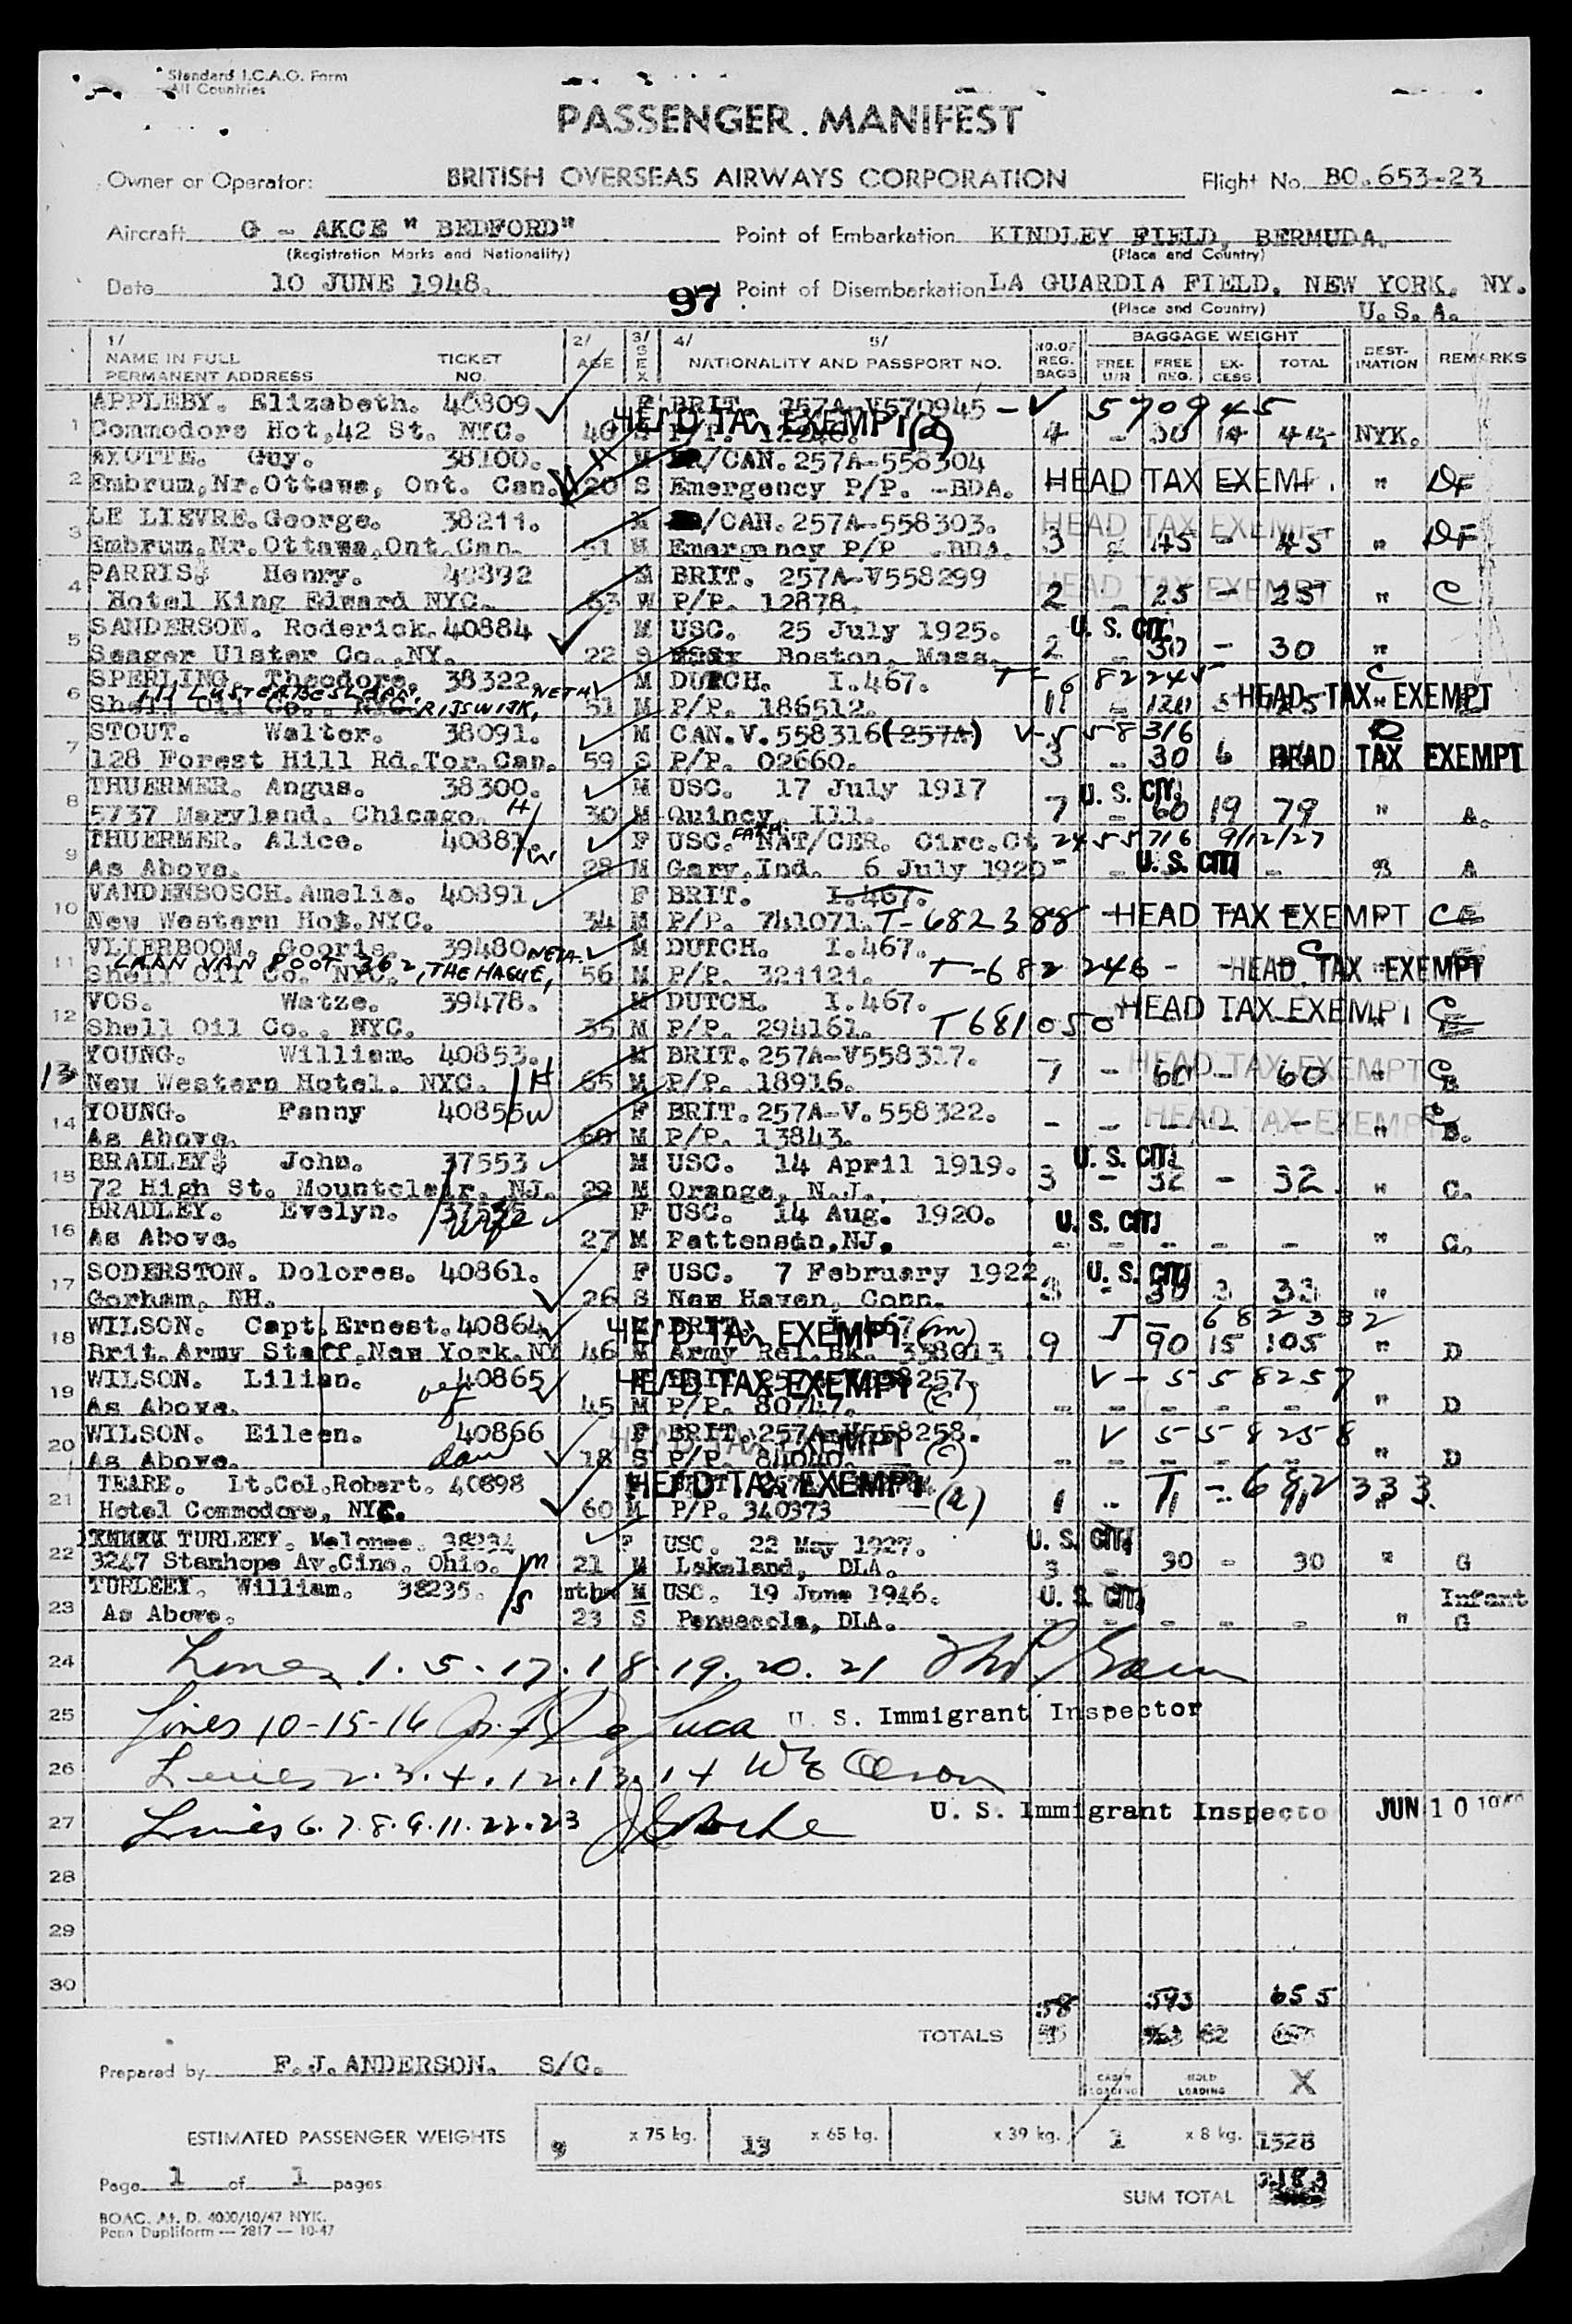 Standard I.C.A.O. Form
All Countries
PASSENGER MANIFEST
Owner or Operator: BRITISH OVERSEAS AIRWAYS CORPORATION Flight No. BO.653-23
Aircraft G - AKCE " BEDFORD" Point of Embarkation KINDLEY FIELD, BERMUDA.
(Registration Marks and Nationality) (Place and Country)
Date 10 JUNE 1948. 97 Point of Disembarkation LA GUARDIA FIELD, NEW YORK, NY.
(Place and Country) U.S.A.
1/ 2/ 3/ 4/ 5/ BAGGAGE WEIGHT
NAME IN FULL TICKET AGE SEX NATIONALITY AND PASSPORT NO. NO.OF REG. BAGS FREE U/R FREE REG. EX-CESS TOTAL DEST-INATION REMARKS
PERMANENT ADDRESS NO.
1 APPLEBY. Elizabeth. 40809 F BRIT. 257A-V570945 - V 570945
Commodore Hot,42 St. NYC. 40 S HEAD TAX EXEMPT 4 - 30 14 44 NYK.
2 AYOTTE. Guy. 38100. M /CAN.257A-558304
Embrum,Nr.Ottawa, Ont. Can. 20 S Emergency P/P. -BDA. HEAD TAX EXEMPT. " DF
3 LE LIEVRE.George. 38211. M /CAN.257A-558303. HEAD TAX EXEMPT
Embrum,Nr.Ottawa,Ont.Can. 31 M Emergency P/P .BDA. 3 45 - 45 " DF
4 PARRIS. Henry. 40892 M BRIT. 257A-V558299 HEAD TAX EXEMPT
Hotel King Edward NYC. 63 W P/P. 12878. 2 - 25 - 25 " C
5 SANDERSON. Roderick.40884 M USC. 25 July 1925. U. S. CIT.
Seager Ulster Co.,NY. 22 S Boston, Mass. 2 - 30 - 30 "
6 SPERLING. Theodore. 38322. NETH M DUTCH. I.467. T-682245 C
Shell Oil Co., NYC. RIJSWIJK, 51 M P/P. 186512. 11 - 120 5 HEAD TAX EXEMPT
7 STOUT. Walter. 38091. M CAN.V.558316(257A) V-558316 D
128 Forest Hill Rd.Tor.Can. 59 S P/P. 02660. 3 - 30 6 HEAD TAX EXEMPT
8 THUERMER. Angus. 38300. M USC. 17 July 1917 U. S. CIT.
5737 Maryland, Chicago. H 30 M Quincy, Ill. 7 - 60 19 79 " A.
9 THUERMER. Alice. 40881 W F USC. FATH. NAT/CER. Circ.Ct 2455716 9/12/27
As Above. 28 M Gary,Ind. 6 July 1920 - U. S. CIT - " A
10 VANDENBOSCH.Amelia. 40891 F BRIT. I.467.
New Western Hot.NYC. 34 M P/P. 741071. T-682388 HEAD TAX EXEMPT C
11 VLIERBOOM. Gooris. 39480 NETH. M DUTCH. I.467. C
LAAN VAN POOT 362, THE HAGUE,
Shell Oil Co. NYC. 56 M P/P. 321121. T-682246 - HEAD TAX EXEMPT
12 VOS. Watze. 39478. M DUTCH. I.467. HEAD TAX EXEMPT C
Shell Oil Co., NYC. 35 M P/P. 294161. T681050
13 YOUNG. William. 40853. M BRIT.257A-V558317. HEAD TAX EXEMPT C
New Western Hotel. NYC. H 65 M P/P. 18916. 7 - 60 - 60 " B
14 YOUNG. Fanny 40855 W F BRIT.257A-V.558322. HEAD TAX EXEMPT
As Above. 60 M P/P. 13843. - - - - - " B.
15 BRADLEY. John. 37553 M USC. 14 April 1919. U. S. CIT.
72 High St. Mountclair. NJ. 29 M Orange, N.J. 3 - 32 - 32. " C.
16 BRADLEY. Evelyn. wife F USC. 14 Aug. 1920. U. S. CIT
As Above. 27 M Pattenson,NJ. - - - - - " C.
17 SODERSTON. Dolores. 40861. F USC. 7 February 1922 U. S. CIT
Gorham, NH. 26 S New Haven, Conn. 3 - 30 3 33 "
18 WILSON. Capt.Ernest.40864 HEAD TAX EXEMPT (m) T - 682332
Brit.Army Staff,New York.NY 46 M Army Rel.Bk. 338013 9 90 15 105 " D
19 WILSON. Lilian. 40865 HEAD TAX EXEMPT V - 558257
As Above. 45 M P/P. 80747. (c) - - - - - " D
20 WILSON. Eileen. 40866 F BRIT.257A-V558258. V 558258
As Above. dau 18 S P/P. HEAD TAX EXEMPT (c) - - - - - " D
21 TEARE. Lt.Col.Robert. 40898 HEAD TAX EXEMPT T - 682333.
Hotel Commodore, NYC. 60 M P/P. 340373 (a) 1 - 11 - 11 "
22 TURLEEY. Melonee. 38234 F USC. 22 May 1927. U. S. CIT
3247 Stanhope Av.Cinc. Ohio. m 21 M Lakeland, DLA. 3 - 30 - 30 " G
23 TURLEEY. William. 38235. mths M USC. 19 June 1946. U. S. CIT. Infant
As Above. S 23 S Pensacola, DLA. - - - - - " G
24 Lines 1. 5. 17. 18. 19. 20. 21
25 Lines 10-15-16 De Luca U. S. Immigrant Inspector
26 Lines 2. 3. 4. 12. 13. 14
27 Lines 6. 7. 8. 9. 11. 22. 23 U. S. Immigrant Inspecto JUN 10
28
29
30
58 593 655
TOTALS 62
Prepared by F.J.ANDERSON. S/C.
CABIN LOADING HOLD LOADING X
ESTIMATED PASSENGER WEIGHTS 9 x 75 kg. 13 x 65 kg. x 39 kg. 1 x 8 kg. 1528
Page 1 of 1 pages
SUM TOTAL 2183
BOAC. Af. D. 4000/10/47 NYK.
Penn Dupliform — 2817 — 10-47